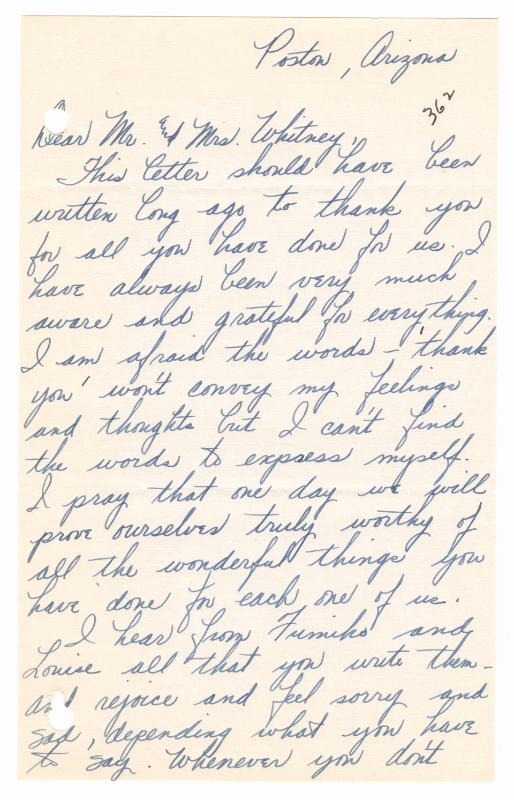 Poston, Arizona
362
Dear Mr. and Mrs. Whitney,
This letter should have been
written long ago to thank you
for all you have done for us. I
have always been very much
aware and grateful for everything.
I am afraid the words – 'thank
you' won't convey my feelings
and thoughts but I can't find
the words to express myself.
I pray that one day we will
prove ourselves truly worthy of
all the wonderful things you
have done for each one of us.
I hear from Fumiko and
Louise all that you write them –
and rejoice and feel sorry and
sad, depending what you have
to say. Whenever you don't